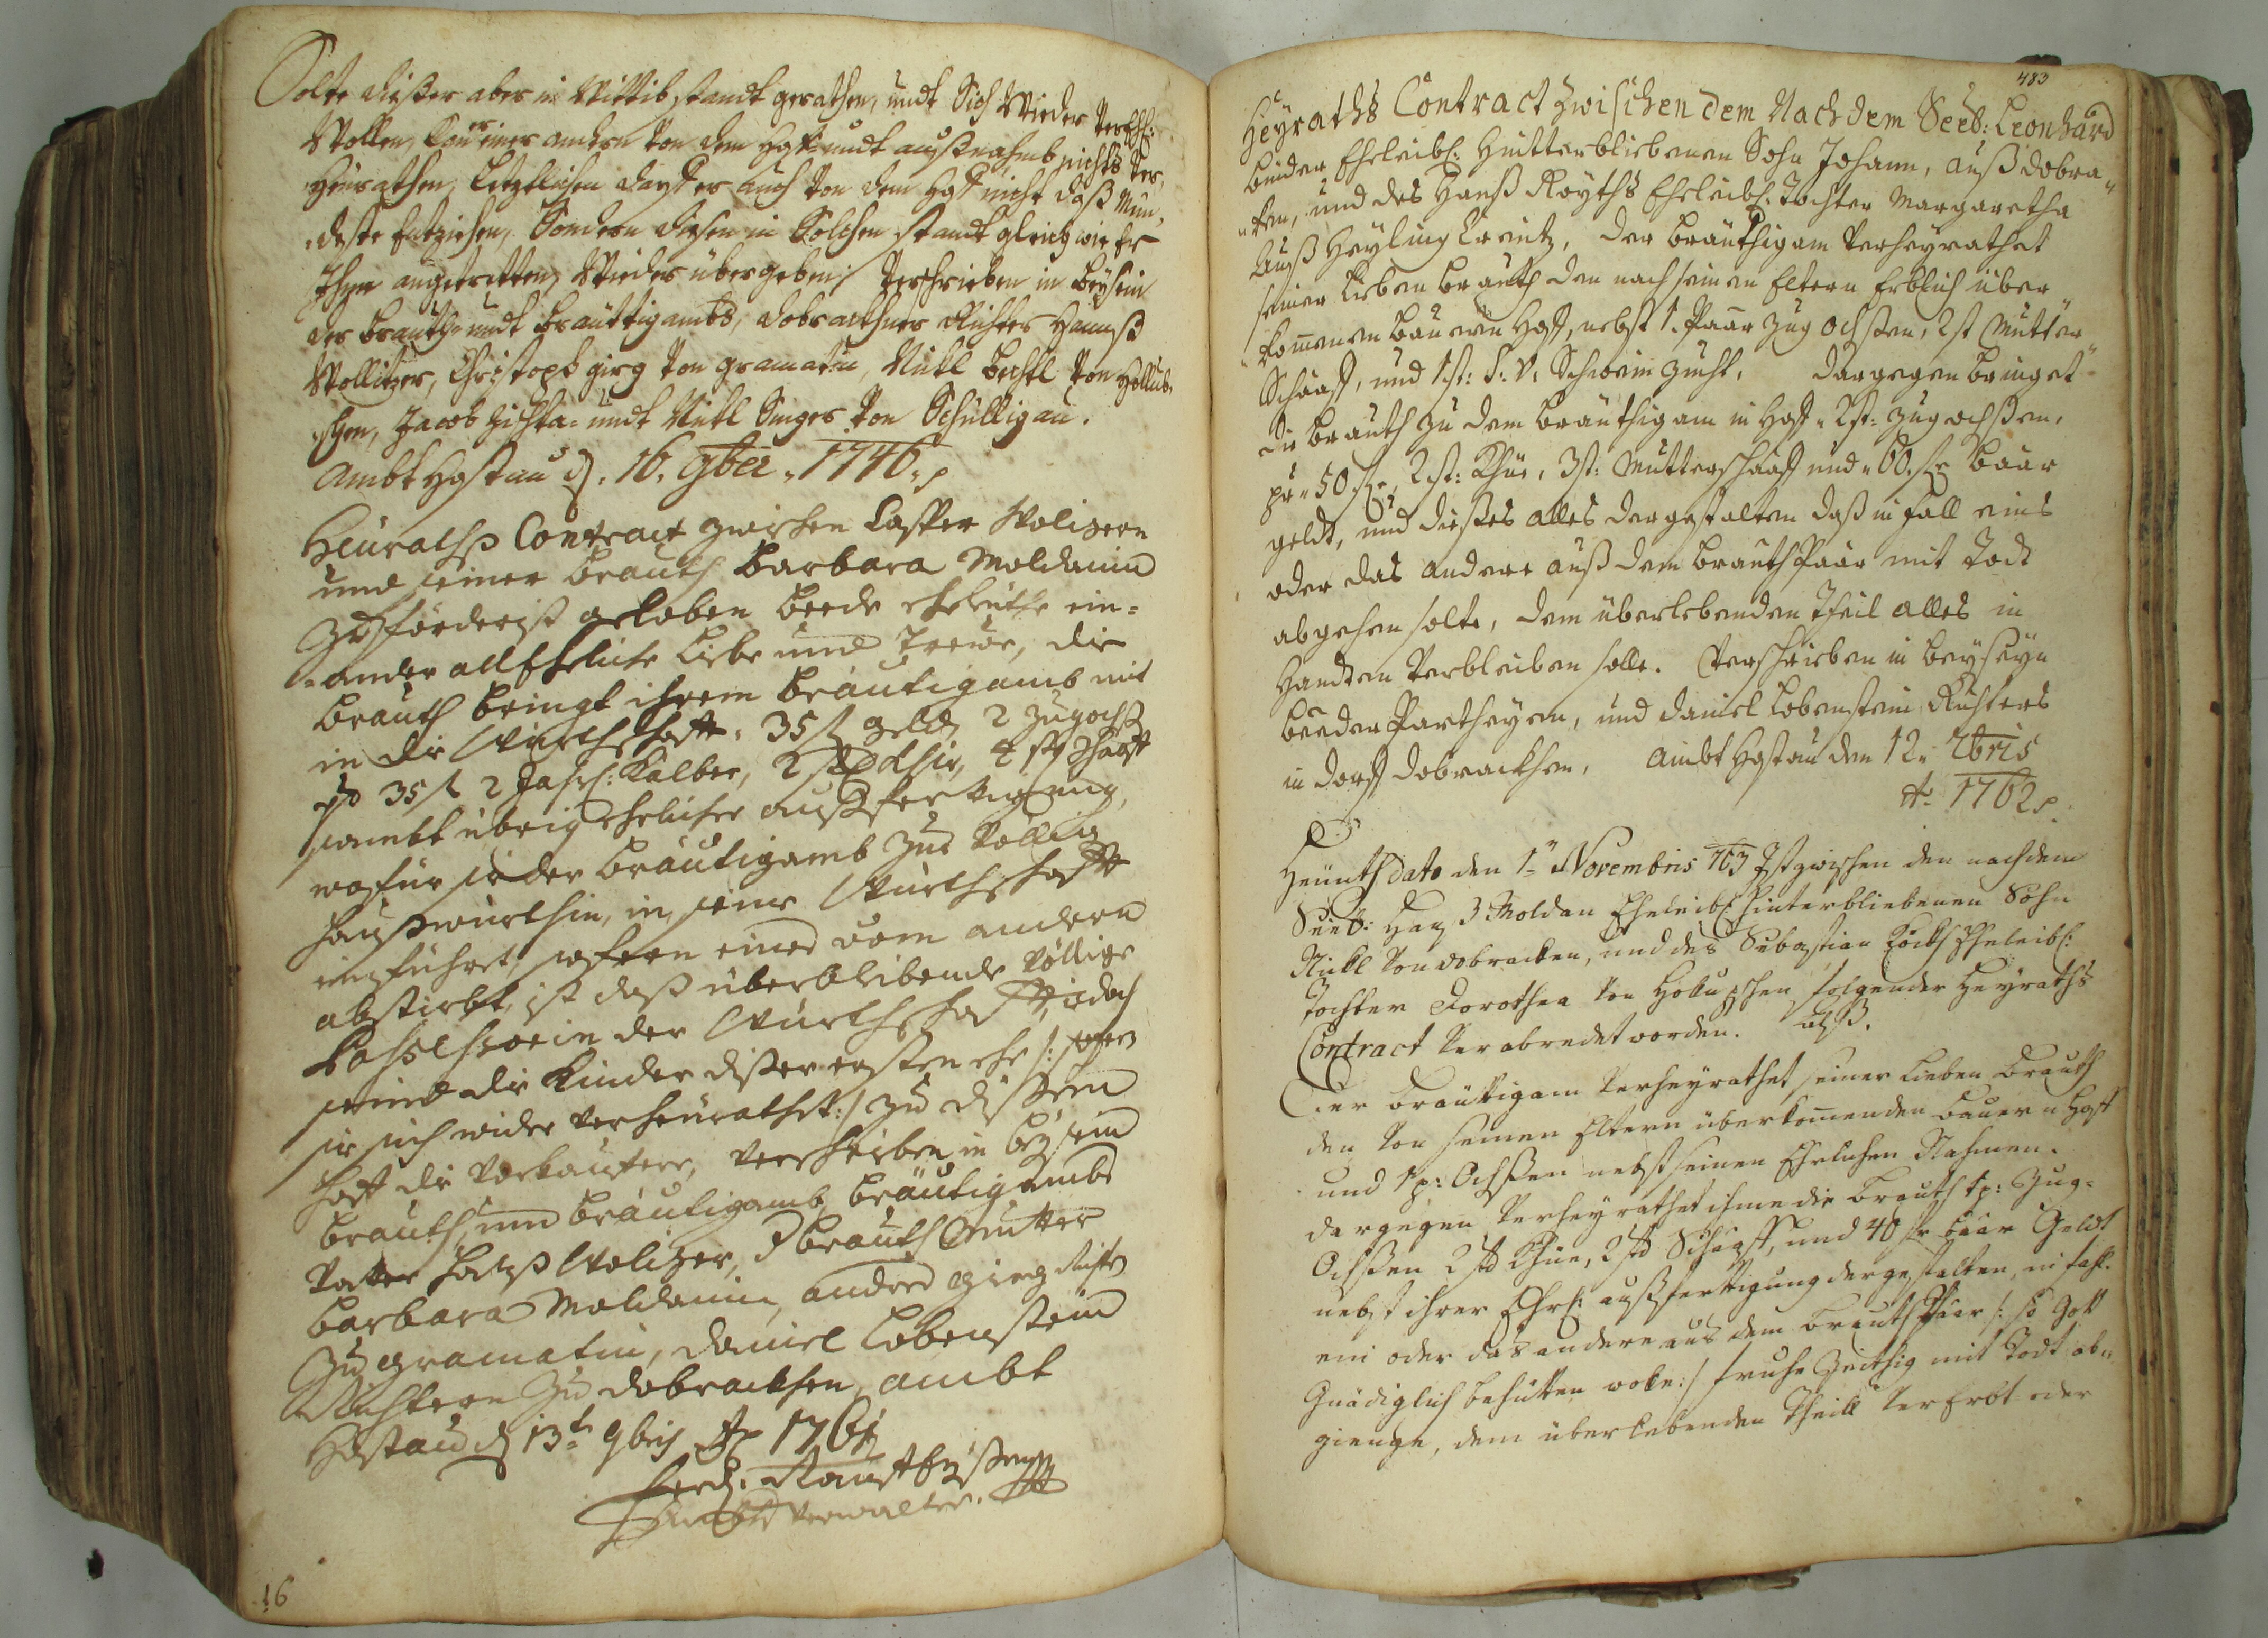 Solte dießer aber in Wittibstandt gerathen, undt Sich Wieder verehl:
Wollen, kan er einer andern von dem Hoff undt außnahmb nichts ver,
heurathen, letztlichen darff er auch von dem Hoff nicht daß Min,
deste entziehen, Sondern diesen in Solchen standt gleich wie Er
Ihn angetretten, Wieder übergeben; Verschrieben in Beysein
der brauth- undt bräuttigambs, dobrackhner Richter Hannß
Wollitzer, Christoph girg von gramatin, Nickl bechtl von Hollub,
schen, Jacob undt Nickl Singer von Schilligau.
Ambt Hostau d. 16. 9ber 1746.
Heuraths Contract zwischen Casper Wolizern
und seiner brauth Barbara Moldanin
Zuforderist geloben beede eheleuthe ein-
-ander all Eheliche Liebe und Treue, die
brauth bringt ihrem bräutigamb mit
in die Würthschafft 35 f geld, 2 zugochß
pr 35 f 2 Jahrl: Kälber, 2 st Khüe, 4 st schaaff
sambt übrig ehelicher außfertigung,
wofür sie der bräutigamb zur völlig
haußwürthin, in seine Würthschafft
einführet, sofern eines vom andern
abstirbt, ist daß überblibende völlige
bahselhsorin der Würthschafft, jedoch
seind die Kinder dißer ersten ehe /: sofern
sie sich wider verheurathet :/ zu dißem
hoff die verschriben in beysein
brauth, und bräutigamb, bräutigambs
Vatter Hanß Wolizer, d brauth Mutter
Barbara Moldanin, andres girg Richter
zu gramatin, daniel Lobenstein
Richtern zu dobrackhen, ambt
Hostau d 13t 9bris Ao 1761
Ferd:
Ambts Verwalter.
16
483
Heyraths Contract zwischen dem Nach dem Seel: Leonhard
binder Eheleibl: Hinterbliebenen Sohn Johann, auß dobra„
„ken, und des Hanß Röyths Eheleibl: Tochter Margaretha
Auß Heyling Creutz, der bräuthigam verheyrathet
seiner lieben brauth den nach seinen Eltern Erblich über
komenen bauern Hoff, nebst 1. Paar zug ochßen, 2 st Mutter
Schaaff, und 1 st: S: V: Schwein zucht, dargegen bringet
die brauth zu dem bräuthigam in Hoff 2 st: zug ochßen,
pr 50 f, 2 st: Khüe, 3 st: Mutterschaaff und 60 f baar
geldt, und dießes alles dergestalten daß in fall eins
oder das andere auß dem brauth Paar mit Todt
abgehen solte, dem überlebenden Theil alles in
Handten Verbleiben solle. Verschrieben in beyseyn
beeder Partheyen, und daniel Lobenstein Richters
in dorff dobrackhen, ambt Hostau den 12 Xbris
Ao 1762.
Heunth dato den 1ten Novembris 763 Ist zwischen den nach dem
Seel: Moldan Eheleibl: hinterbliebenen Sohn
Nickl von dobracken, und des Sebastian Eheleibl:
Tochter Dorothea von Holubschen folgender Heyraths
Contract verabredet worden. alß.
Der bräuttigam verheyrathet seiner lieben brauth
den von seinen Eltern überkomenden bauern Hoff
und 1 p: Ochßen nebst seinen Ehrlichen Nahmen.
dargegen verheyrathet ihme die brauth 1 p: Zug-
Ochßen 2 st Khüe, 2 st Schaaff, und 40 f baar Geldt
nebst ihrer Ehrl: außfertigung dergestalten, in fahl
ein oder das andere aus dem brauthPaar /: so Gott
Gnädiglich behütten wolle :/ fruhe Zeithig mit Todt ab„
gienge, dem überlebenden Theill vererbt oder